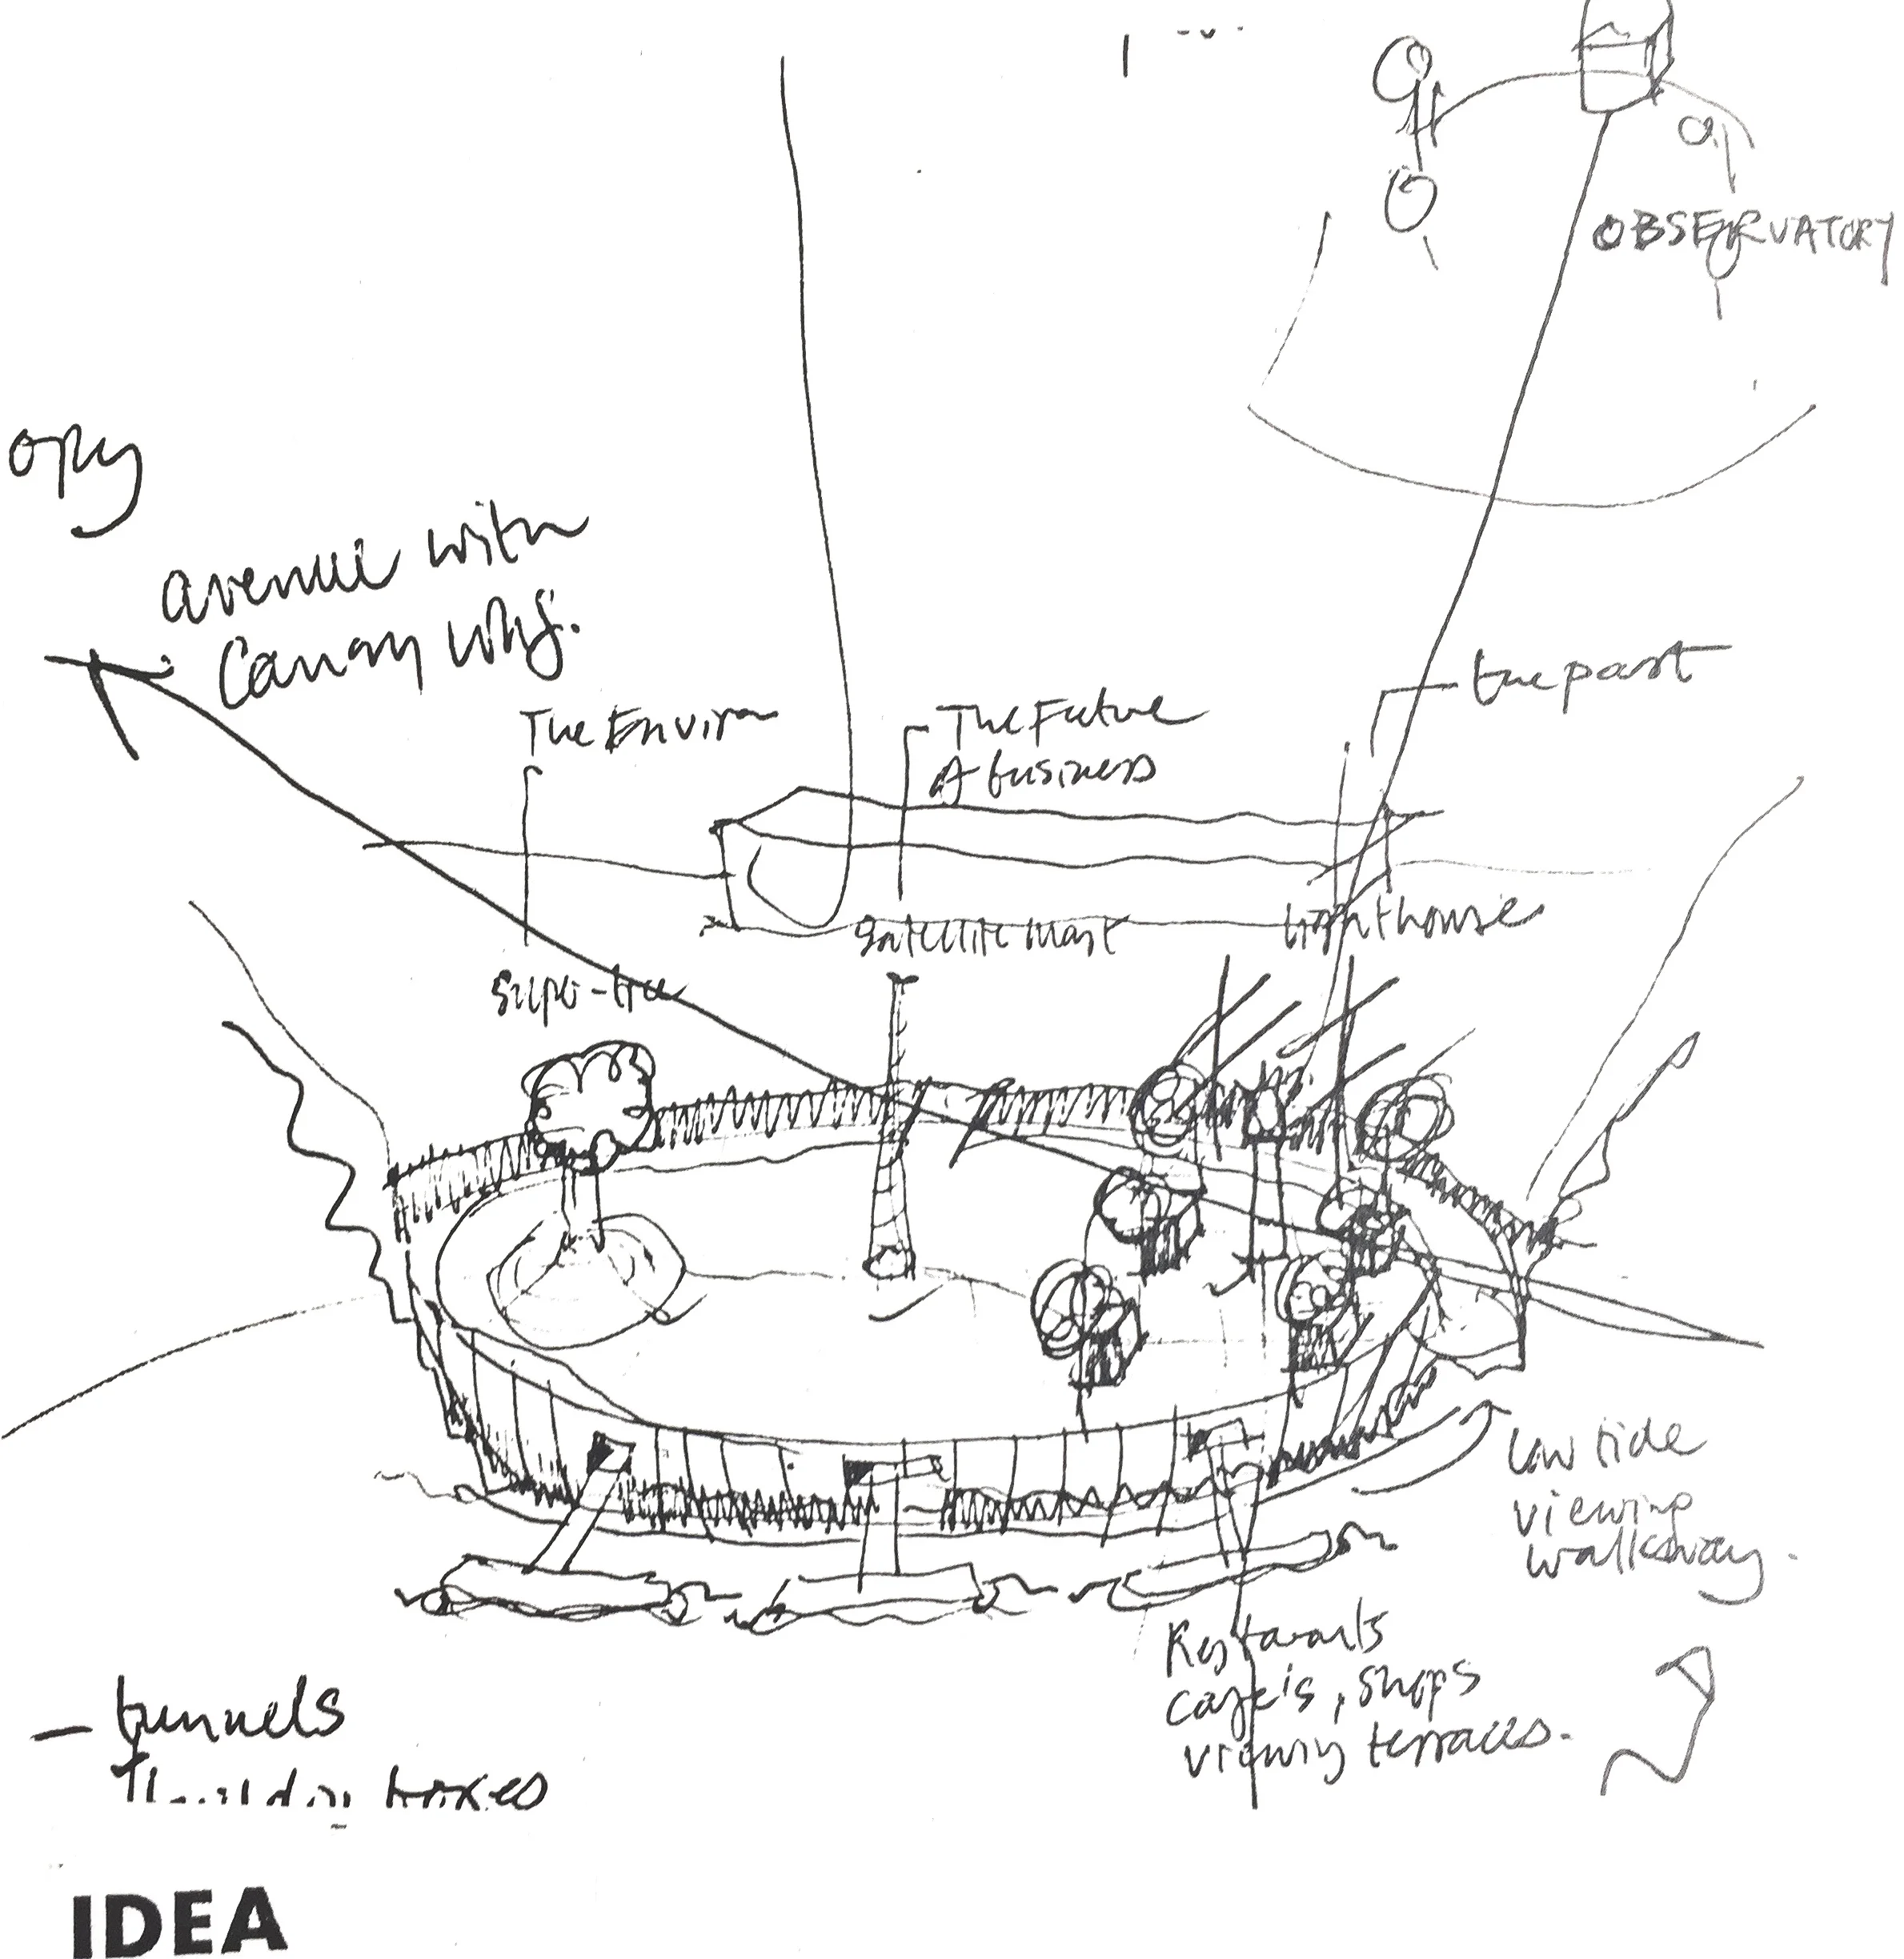 OBSERVATORY
avenue with
Canary Whf.
the past
The Environ
The Future
of business
Satellite Mast
Lighthouse
Super-tree
Low tide
viewing
walkway.
Restaurants
cafe's, shops
viewing terraces.
– tunnels
boxes
IDEA